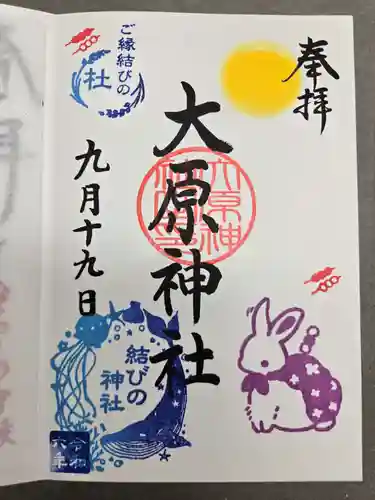 奉拝
大原神社
九月十九日
ご縁結びの
杜
結びの
神社
令和
六年